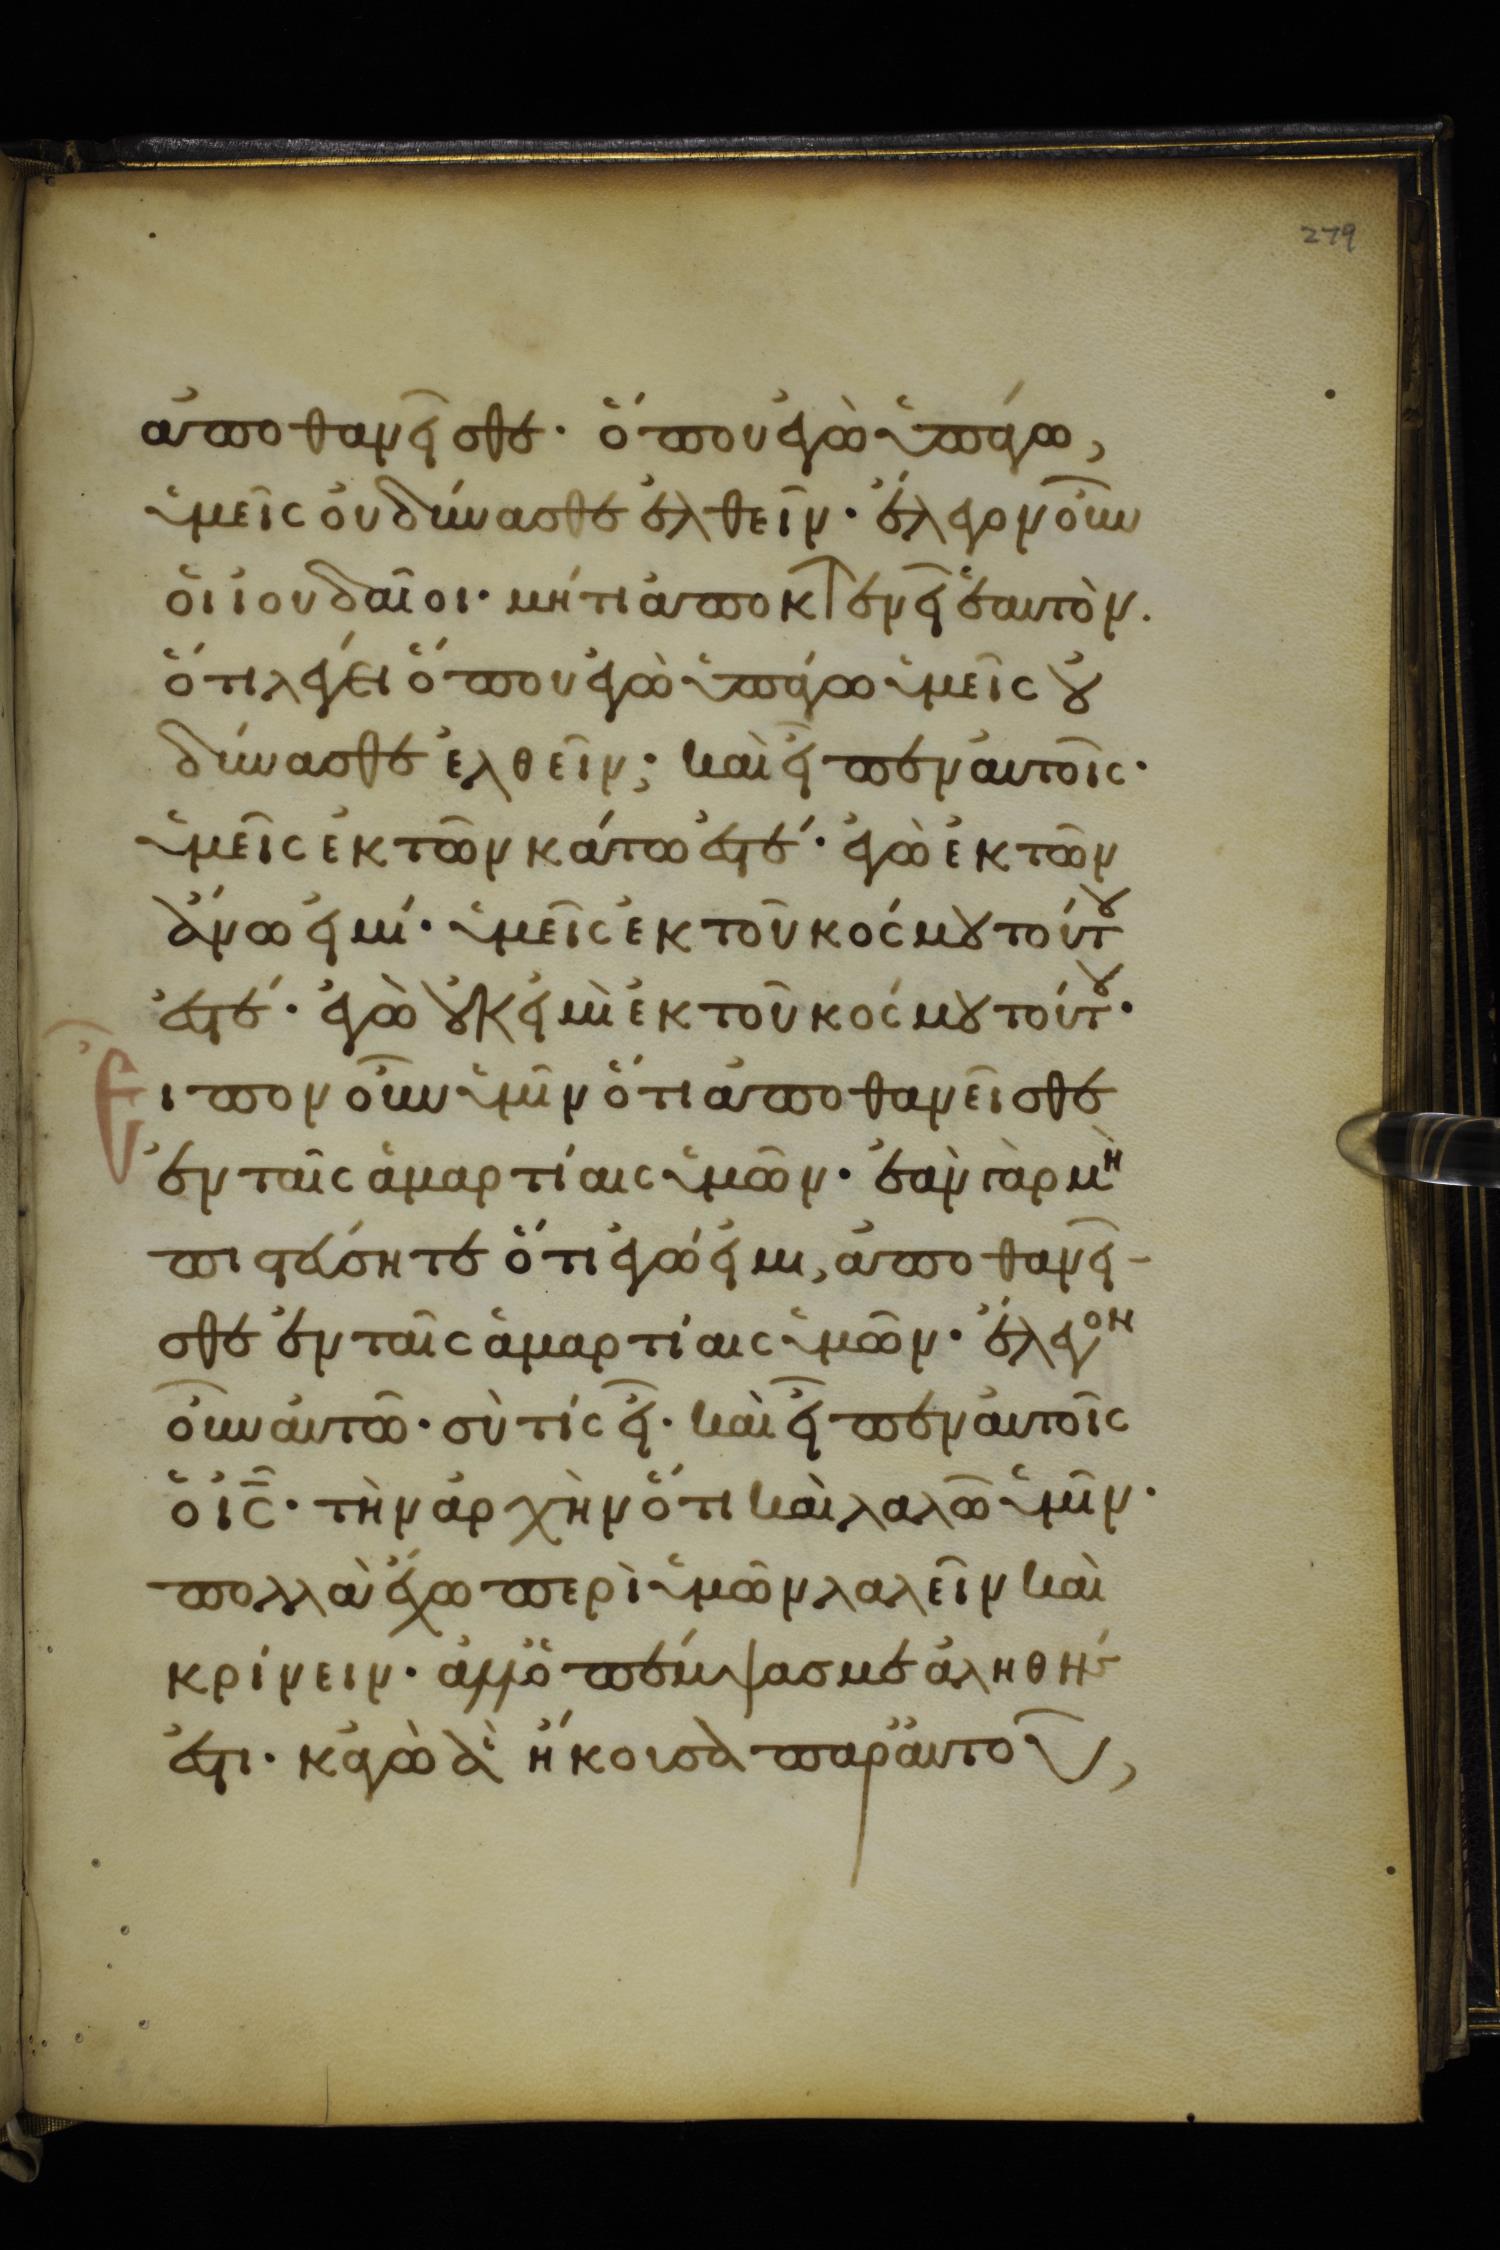 279
ἀποθανεῖσθε· ὅπου ἐγὼ ὑπάγω,
ὑμεῖς οὐ δύνασθε ἐλθεῖν· ἔλεγον οὖν
οἱ ἰουδαῖοι· μήτι ἀποκτενεῖ ἑαυτὸν.
ὅτι λέγει ὅπου ἐγὼ ὑπάγω ὑμεῖς οὐ
δύνασθε ἐλθεῖν; καὶ εἶπεν αὐτοῖς·
ὑμεῖς ἐκ τῶν κάτω ἐστέ· ἐγὼ ἐκ τῶν
ἄνω εἰμί· ὑμεῖς ἐκ τοῦ κόσμου τούτου
ἐστέ· ἐγὼ οὐκ εἰμὶ ἐκ τοῦ κόσμου τούτου·
Εἶπον οὖν ὑμῖν ὅτι ἀποθανεῖσθε
ἐν ταῖς ἁμαρτίαις ὑμῶν· ἐὰν γὰρ μὴ
πιστεύσητε ὅτι ἐγώ εἰμι, ἀποθανεῖ-
σθε ἐν ταῖς ἁμαρτίαις ὑμῶν· ἔλεγον
οὖν αὐτῶ· σὺ τίς εἶ· καὶ εἶπεν αὐτοῖς
ὁ ις̅· τὴν ἀρχὴν ὅτι καὶ λαλῶ ὑμῖν·
πολλὰ ἔχω περὶ ὑμῶν λαλεῖν καὶ
κρίνειν· ἀλλ' ὁ πέμψας με ἀληθής
ἐστι· κἀγὼ ἃ ἤκουσα παρ' αὐτοῦ,